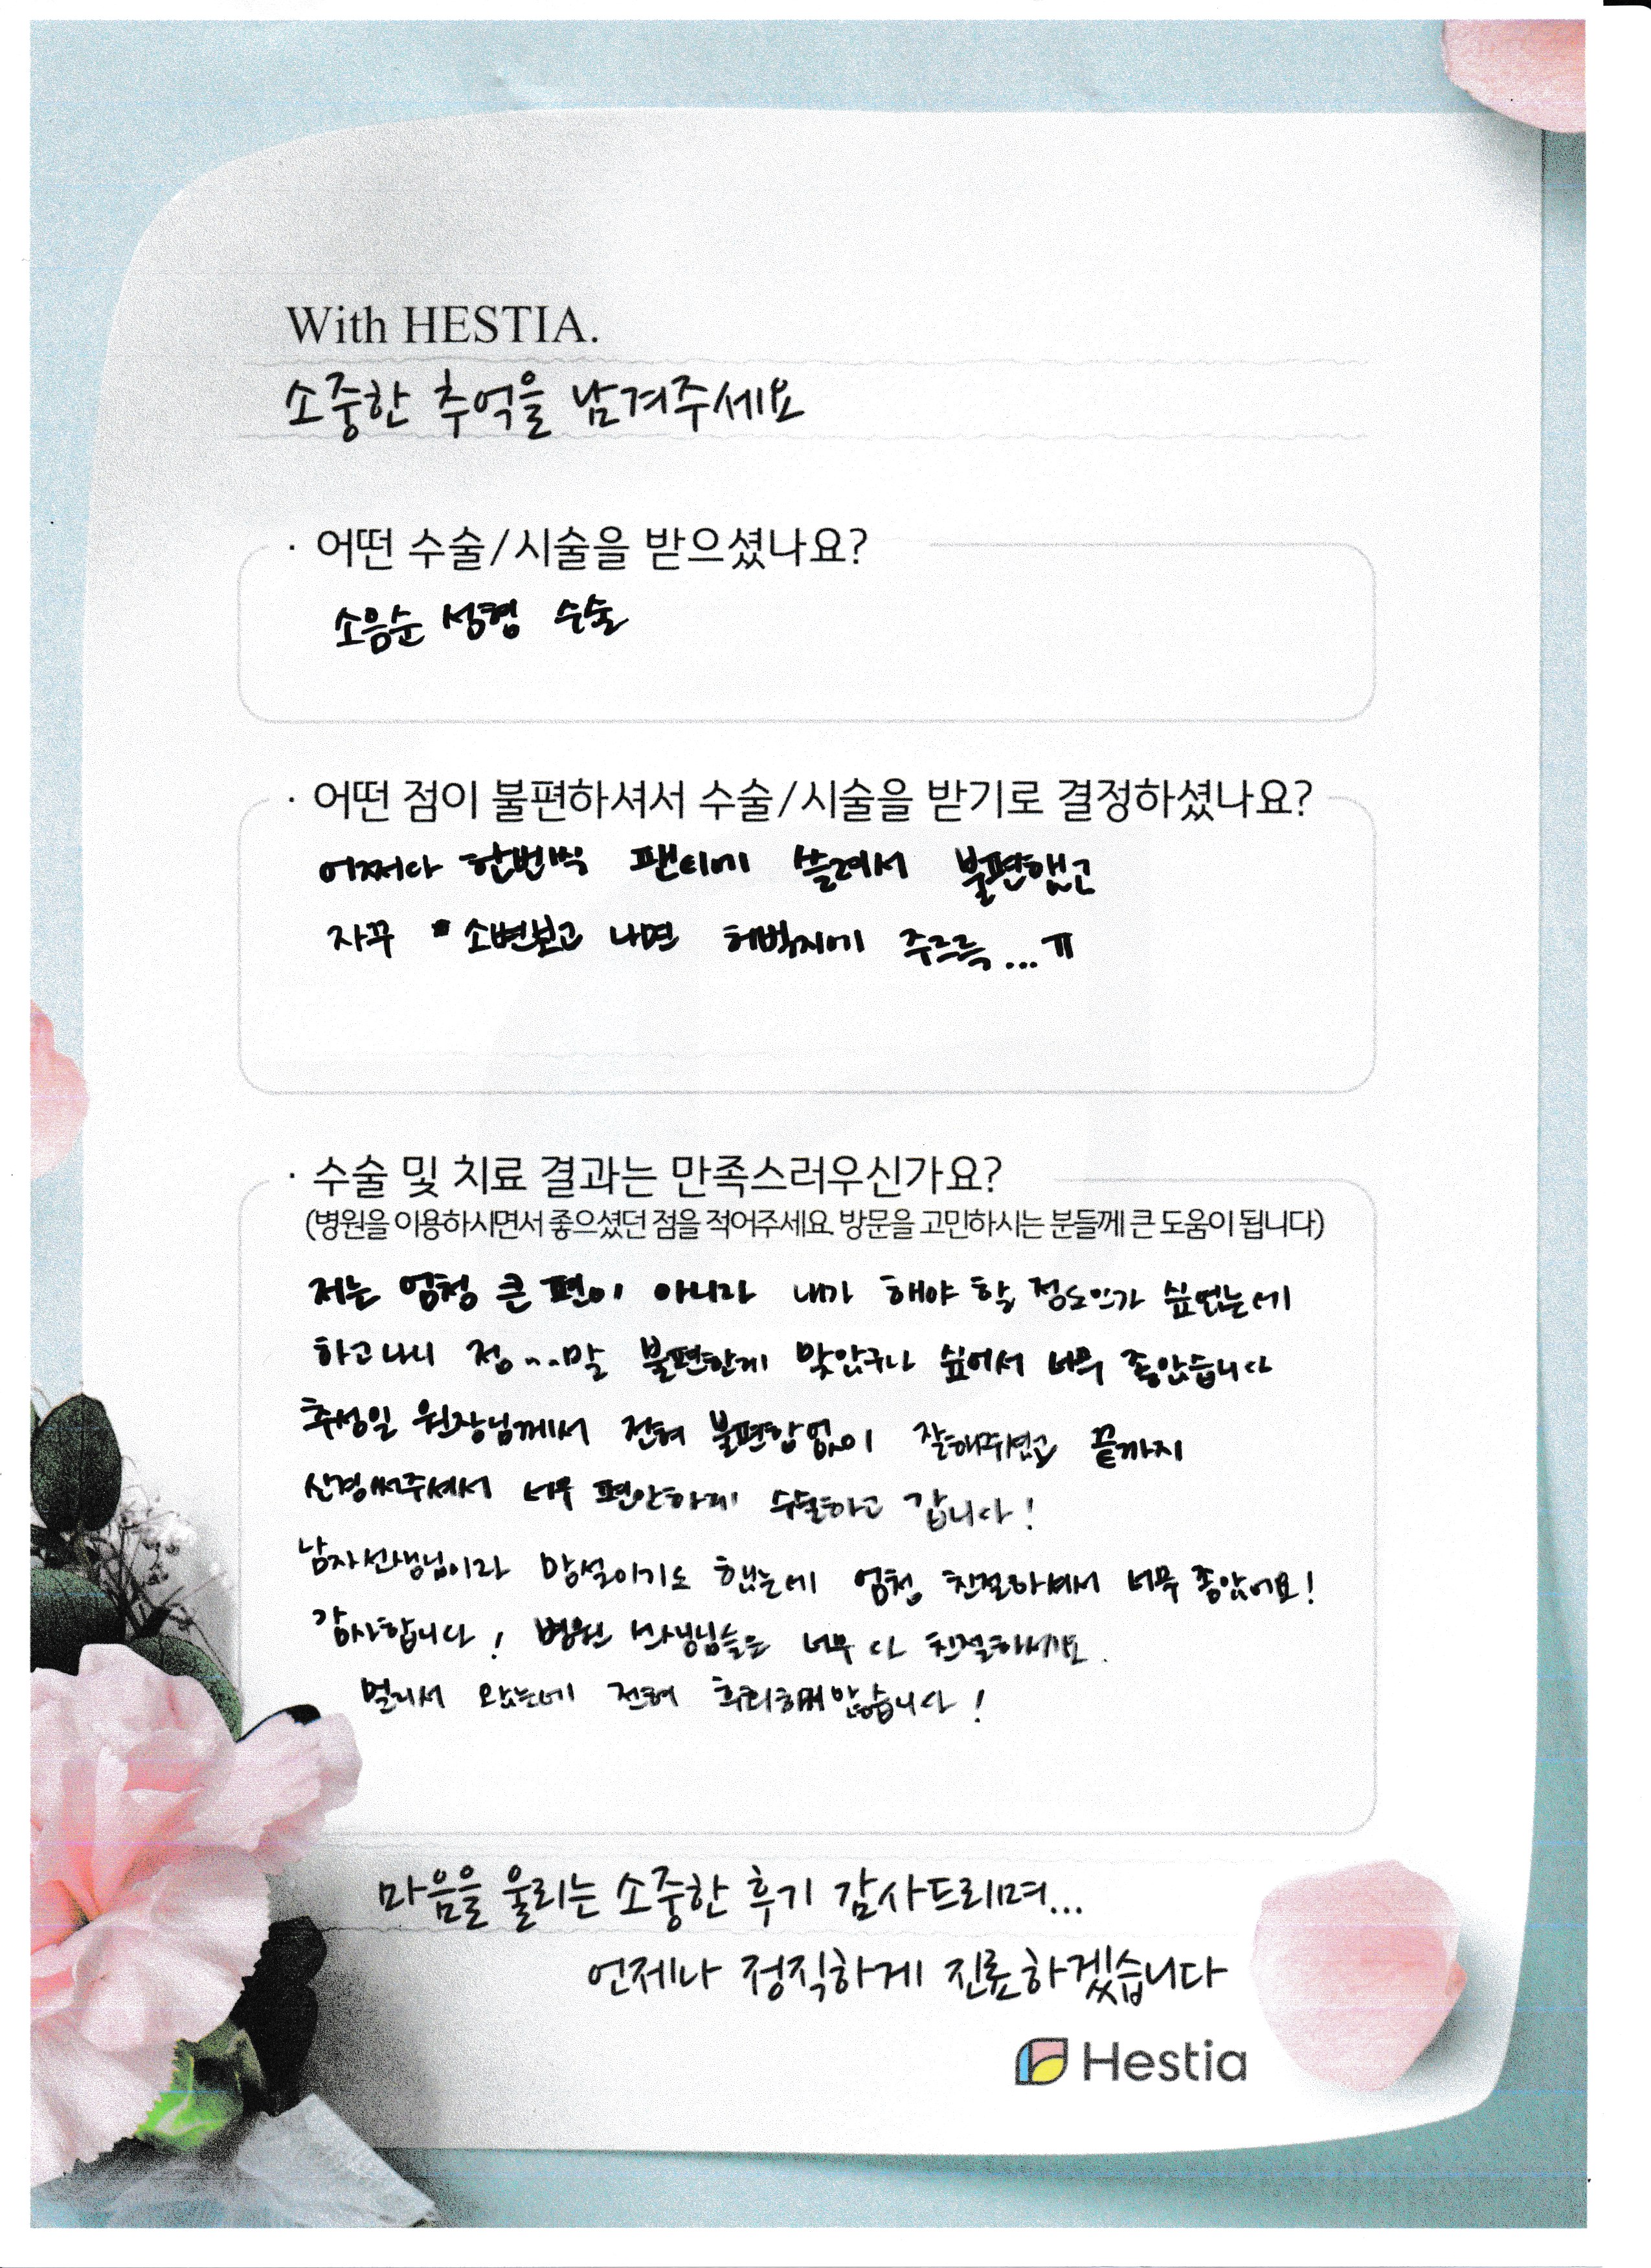 With HESTIA.
소중한 추억을 남겨주세요
· 어떤 수술/시술을 받으셨나요?
소음순 성형 수술
· 어떤 점이 불편하셔서 수술/시술을 받기로 결정하셨나요?
어쩌다 한번씩 팬티에 쓸려서 불편했고
자꾸 소변보고 나면 허벅지에 주르륵...ㅠ
· 수술 및 치료 결과는 만족스러우신가요?
(병원을 이용하시면서 좋으셨던 점을 적어주세요. 방문을 고민하시는 분들께 큰 도움이 됩니다)
저는 엄청 큰 편이 아니라 내가 해야 할 정도인가 싶었는데
하고나니 정...말 불편한게 맞았구나 싶어서 너무 좋았습니다
추성일 원장님께서 전혀 불편함없이 잘해주셨고 끝까지
신경써주셔서 너무 편안하게 수술하고 갑니다!
남자선생님이라 망설이기도 했는데 엄청 친절하셔서 너무 좋았어요!
감사합니다! 병원 선생님들은 너무 다 친절하시고.
멀리서 왔는데 전혀 후회하지않습니다!
마음을 울리는 소중한 후기 감사드리며...
언제나 정직하게 진료하겠습니다
Hestia